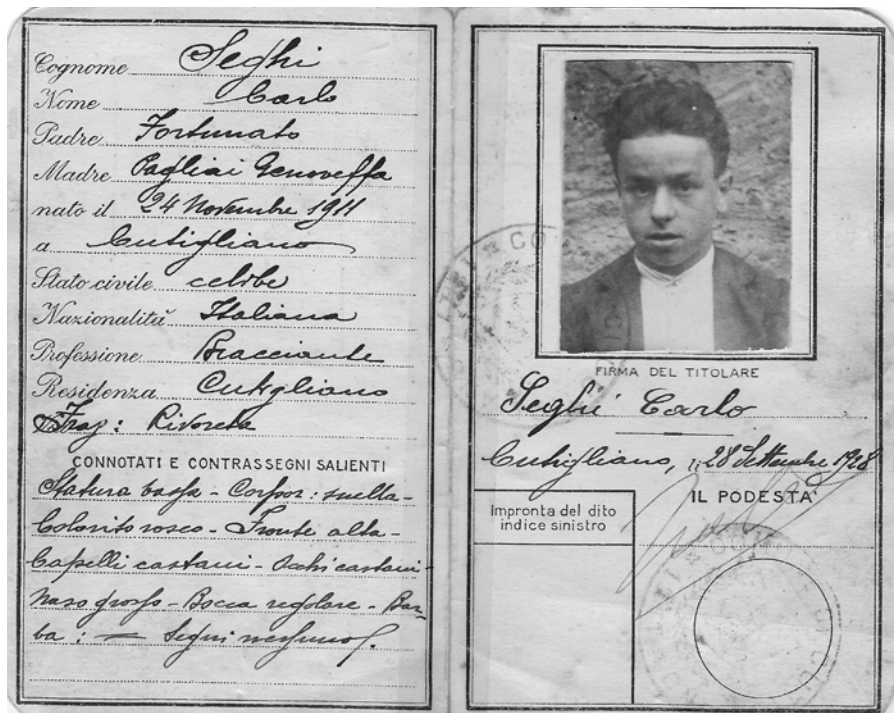 Cognome Seghi
Nome Carlo
Padre Fortunato
Madre Pagliai Genoveffa
nato il 24 Novembre 1911
a Cutigliano
Stato civile celibe
Nazionalità Italiana
Professione Bracciante
Residenza Cutigliano
Fraz: Rivoreta
CONNOTATI E CONTRASSEGNI SALIENTI
Statura bassa - Corpor: snella -
Colorito roseo - Fronte alta -
Capelli castani - Occhi castani -
Naso grosso - Bocca regolare - Bar-
ba: = Segni nessuno.
FIRMA DEL TITOLARE
Seghi Carlo
Cutigliano, lì 28 Settembre 1928
Impronta del dito
indice sinistro
IL PODESTÀ